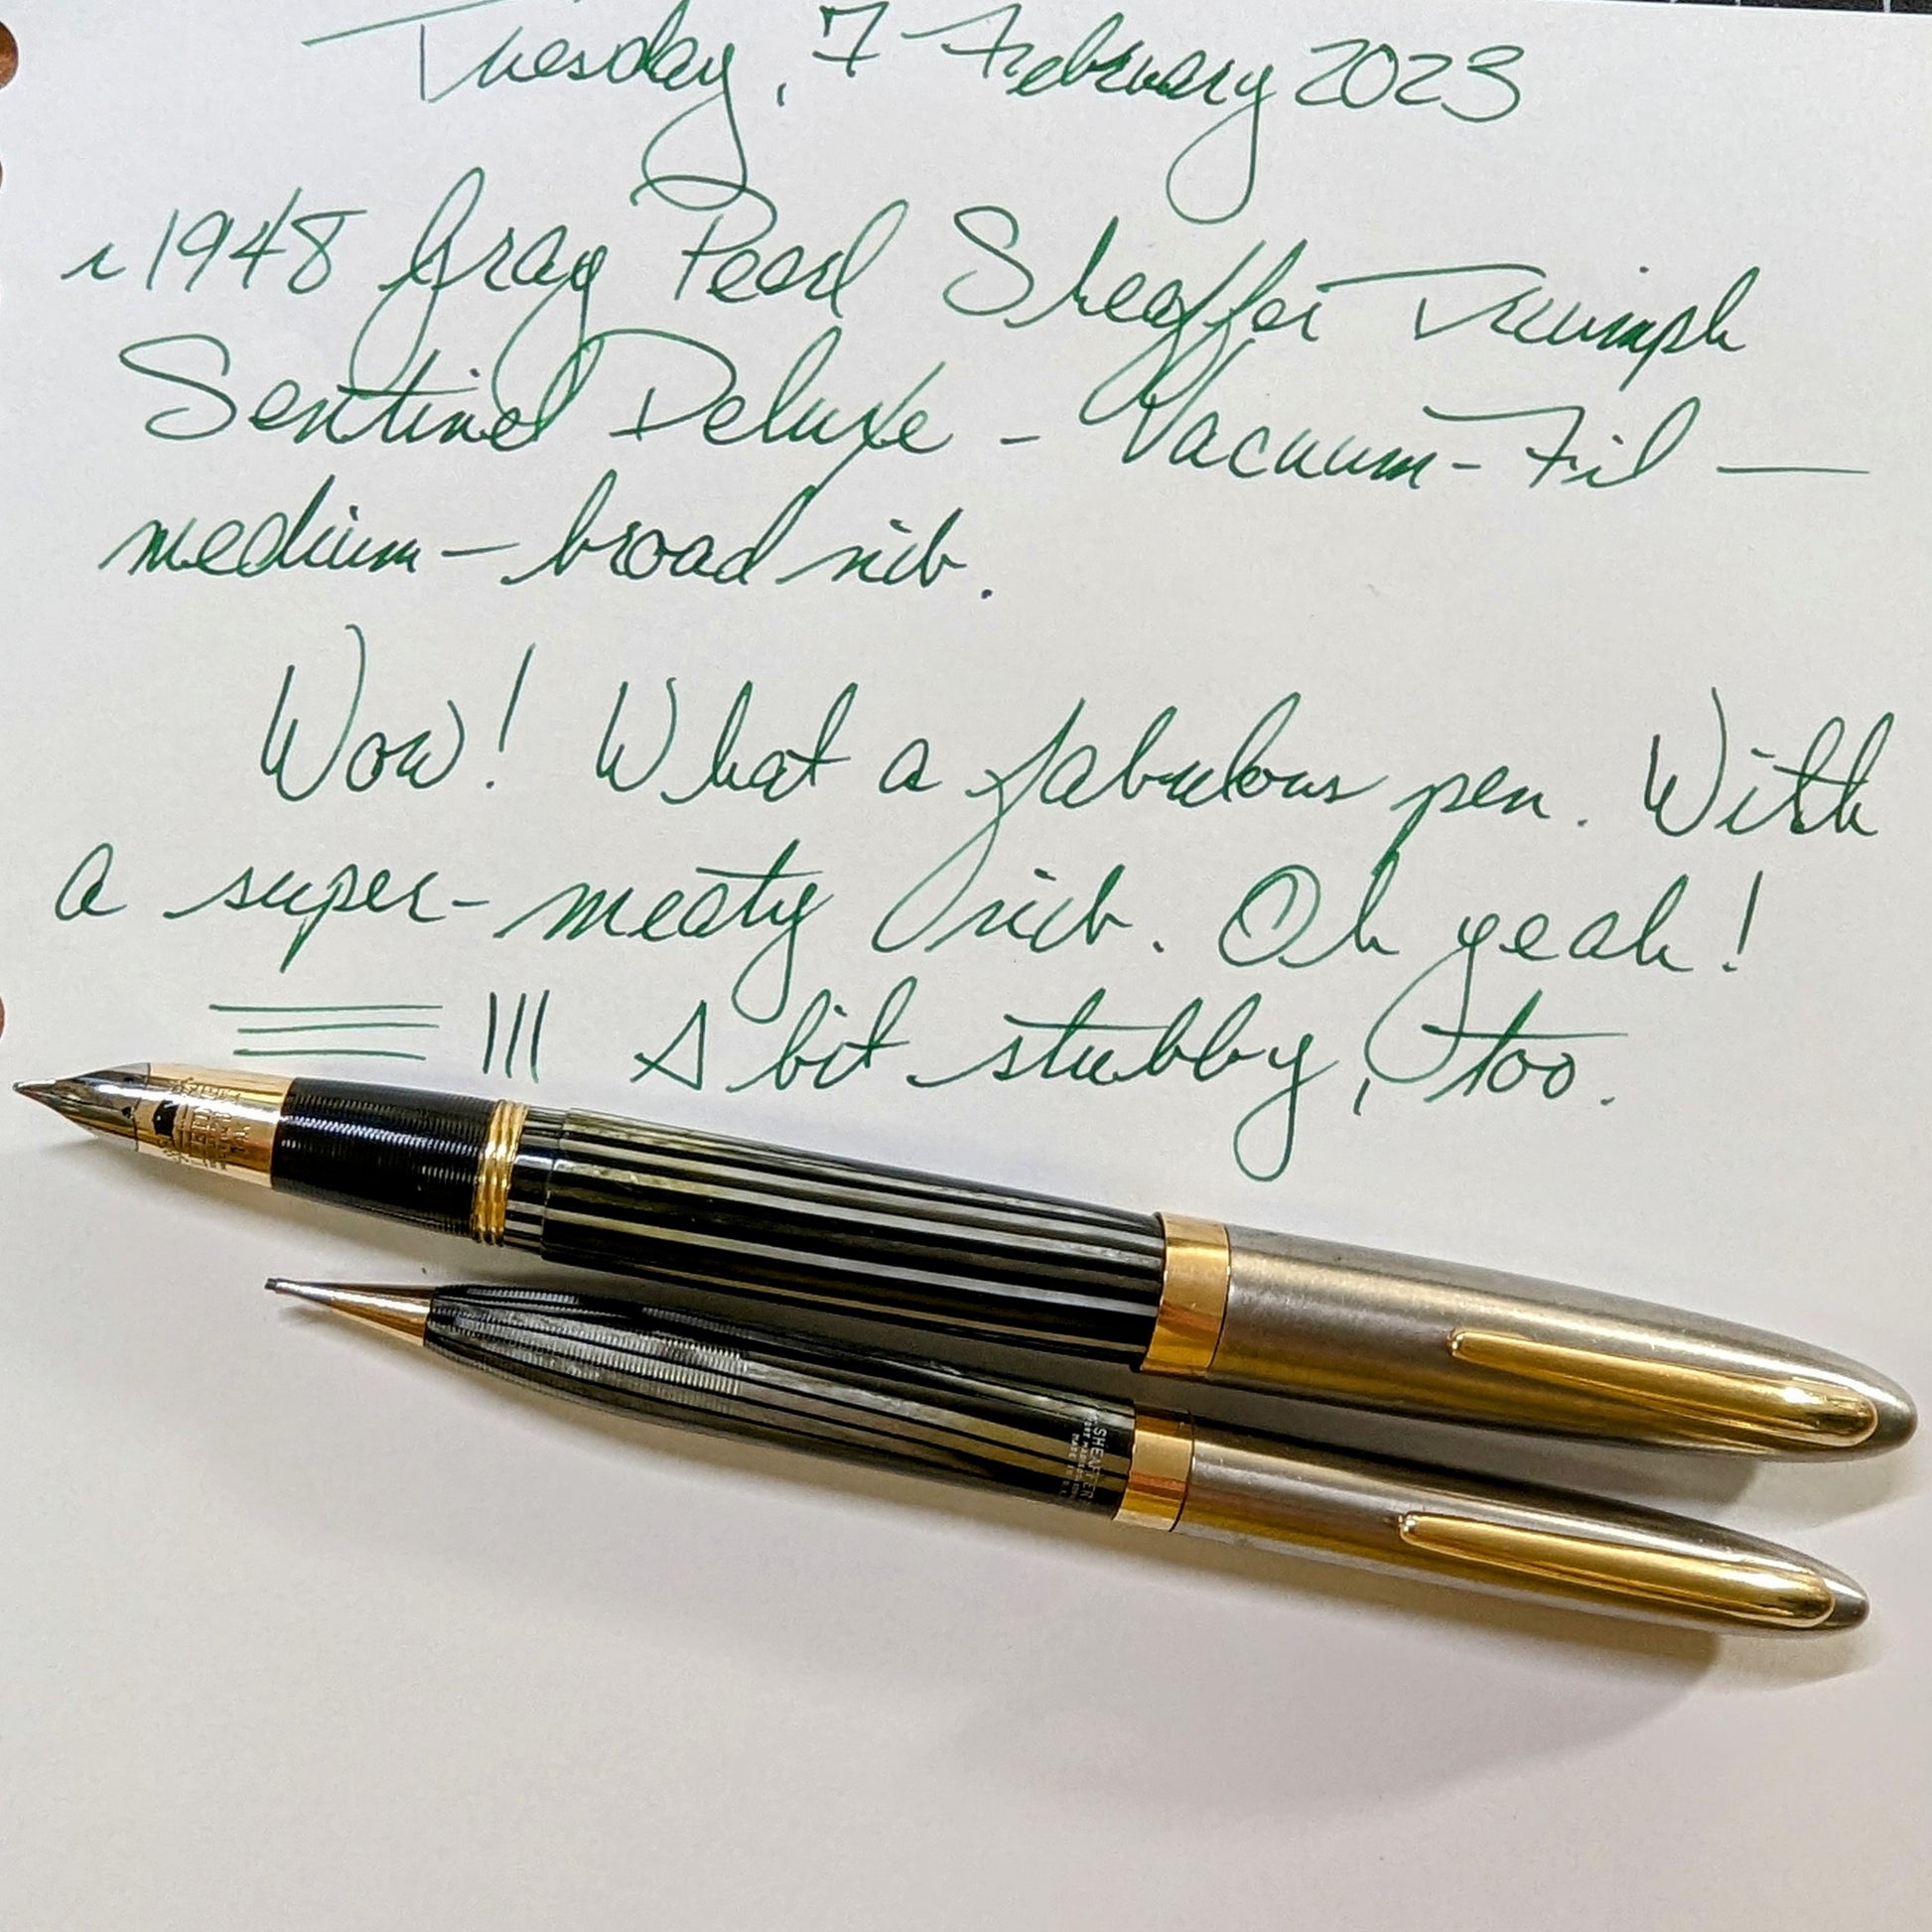 Tuesday, 7 February 2023
c 1948 Gray Pearl Sheaffer Triumph
Sentinel Deluxe - Vacuum-Fil —
medium-broad nib.
Wow! What a fabulous pen. With
a super-meaty nib. Oh yeah!
A bit stubby, too.
SHEAFFER